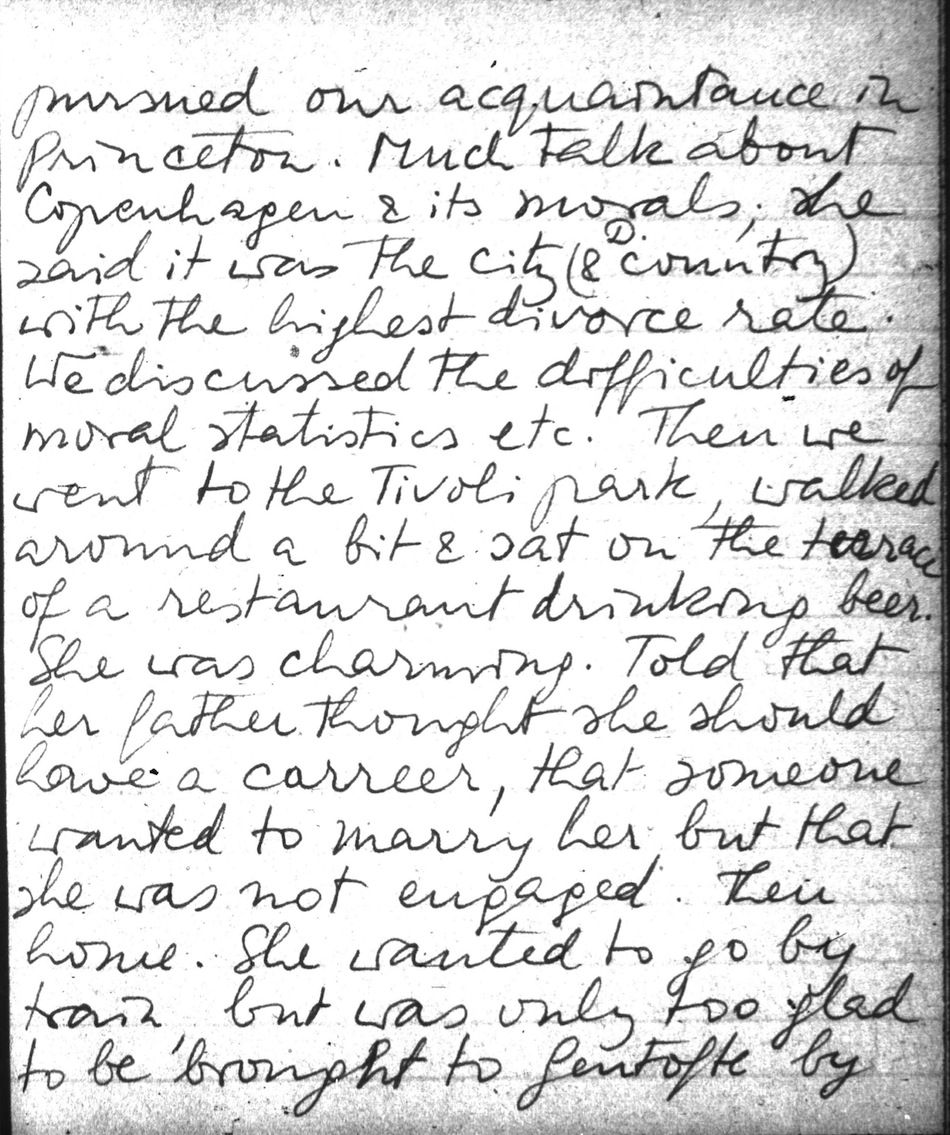 pursued our acquaintance in
Princeton. Much talk about
Copenhagen & its morals; she
said it was the city (& D. country)
with the highest divorce rate.
We discussed the difficulties of
moral statistics etc. Then we
went to the Tivoli park, walked
around a bit & sat on the terrace
of a restaurant drinking beer.
She was charming. Told that
her father thought she should
have a carreer, that someone
wanted to marry her but that
she was not engaged. Then
home. She wanted to go by
train, but was only too glad
to be brought to Gentofte by